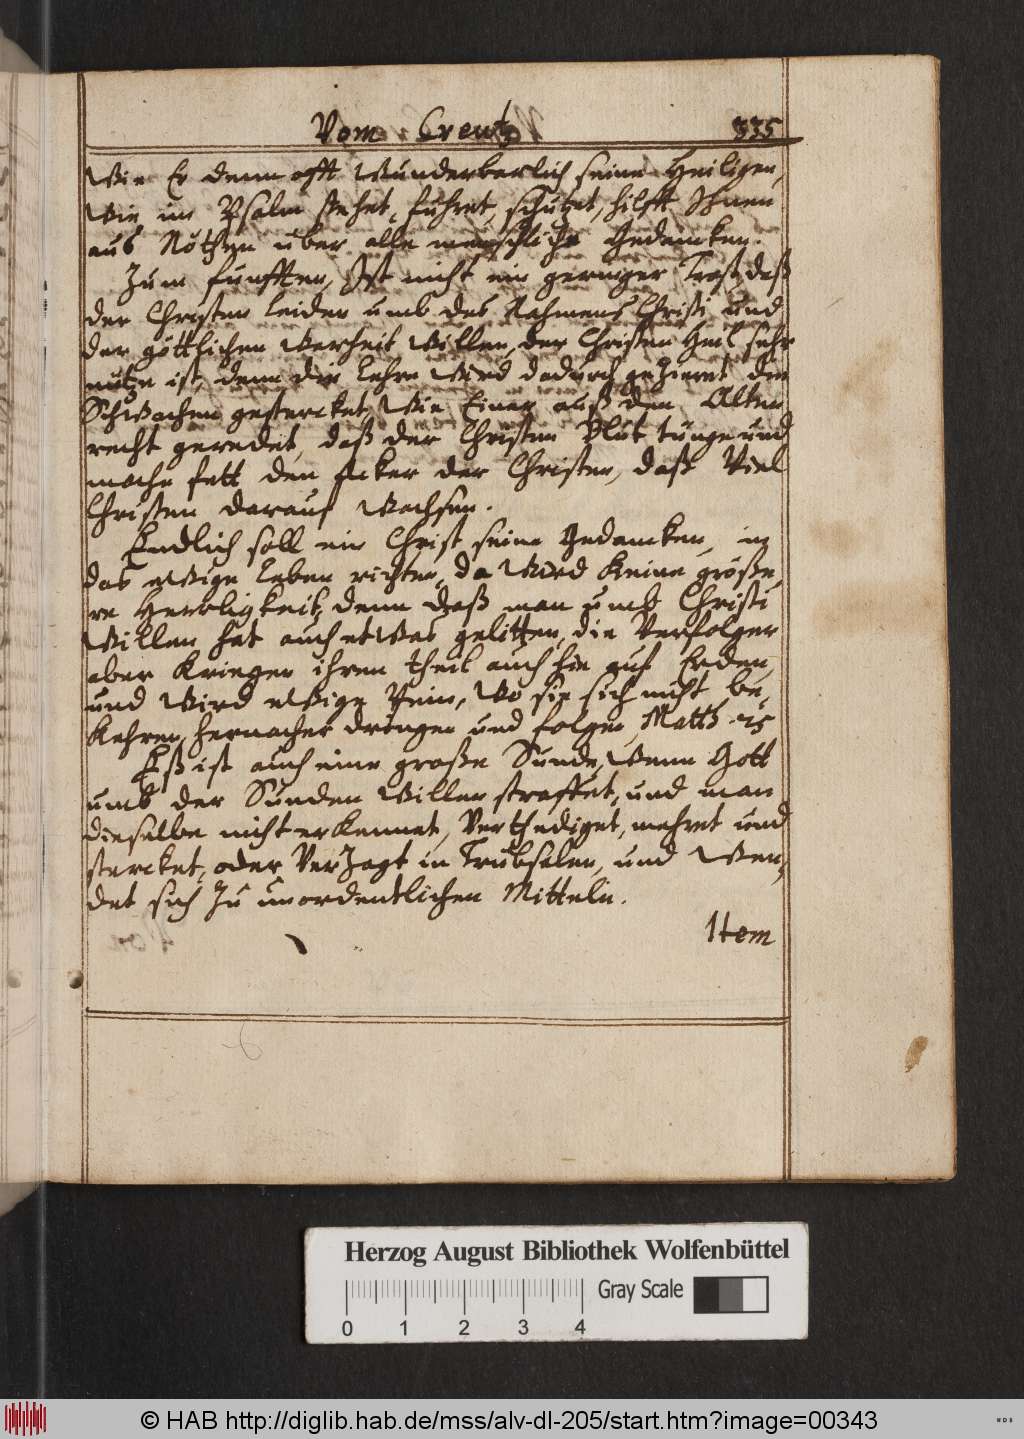 Vom Creutz 335
Wie Er denn offt Wunderbarlich seine Heiligen,
Wie im Psalm stehet, fuhret, schutzet, hilfft Ihnen
aus Nöthen uber alle menschliche Gedancken.
Zum funfften, Ist nicht ein geringer Trost, daß
der Christen leiden umb des Nahmens Christi und
der göttlichen Warheit Willen, der Christen Heil sehr
nutze ist, denn die Lehre Wird dadurch gezieret die
Schwachen gestercket, Wie Einer auß den Alten
recht geredet, daß der Christen Blut tunge und
mache fett den Acker der Christen, daß Viel
Christen darauf Wachsen.
Endlich soll ein Christ seine Gedancken, in
das eWige Leben richten, da Wird Keine größe,
re Herrligkeit, denn daß man umb Christi
Willen hat auch etWas gelitten, die Verfolger
aber Kriegen ihren theil auch hie auf Erden,
und Wird eWige Pein, Wo sie sich nicht be,
Kehren, hernacher dringen und folgen, Matth. 25
Eß ist auch eine große Sunde, Wenn Gott
umb der Sunden Willen straffet, und man
dieselbe nicht erkennet, Verthediget, mehret und
stercket, oder VerZagt in Trubsalen, und Wen,
det sich Zu unordentlichen Mitteln.
Item
Herzog August Bibliothek Wolfenbüttel
Gray Scale
0 1 2 3 4
© HAB http://diglib.hab.de/mss/alv-dl-205/start.htm?image=00343
WDB